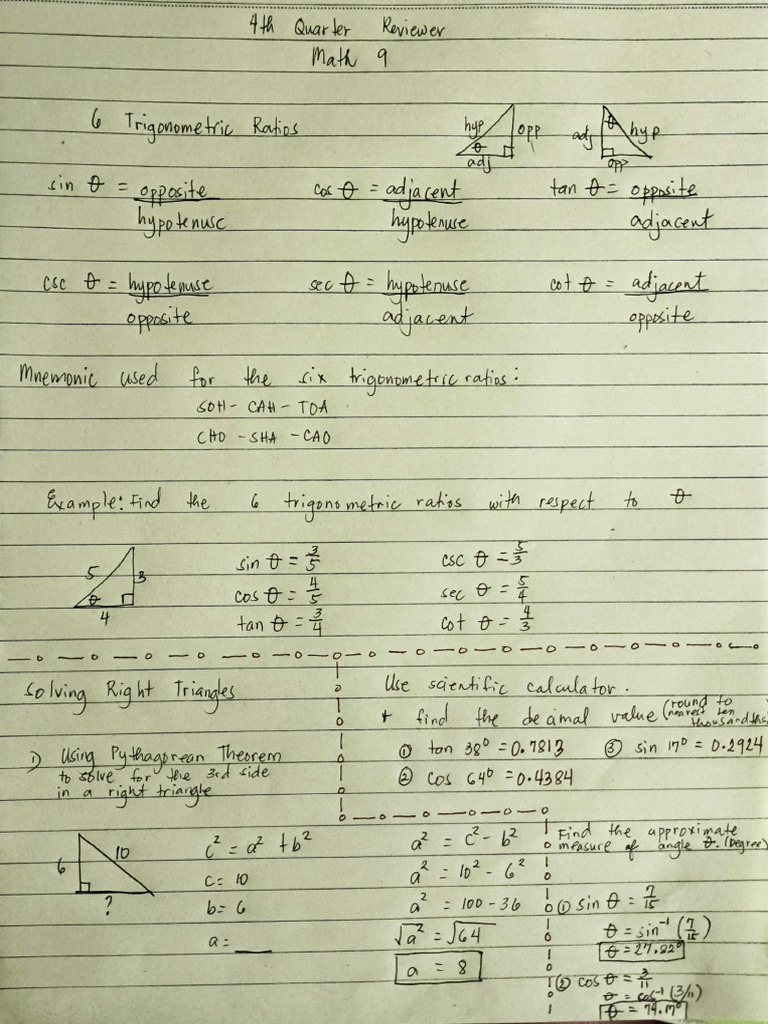 4th Quarter Reviewer
Math 9
6 Trigonometric Ratios
hyp opp θ adj
adj θ hyp opp
sin θ = opposite/hypotenuse cos θ = adjacent/hypotenuse tan θ = opposite/adjacent
csc θ = hypotenuse/opposite sec θ = hypotenuse/adjacent cot θ = adjacent/opposite
Mnemonic used for the six trigonometric ratios:
SOH - CAH - TOA
CHO - SHA - CAO
Example: Find the 6 trigonometric ratios with respect to θ
5 3 θ 4
sin θ = 3/5 csc θ = 5/3
cos θ = 4/5 sec θ = 5/4
tan θ = 3/4 cot θ = 4/3
Solving Right Triangles
1) Using Pythagorean Theorem
to solve for the 3rd side
in a right triangle
Use scientific calculator.
* find the decimal value (round to
nearest ten
thousandths
① tan 38° = 0.7813 ③ sin 17° = 0.2924
② cos 64° = 0.4384
6 10 ?
c² = a² + b²
c = 10
b = 6
a = ___
a² = c² - b²
a² = 10² - 6²
a² = 100 - 36
√a² = √64
a = 8
Find the approximate
measure of angle θ. (Degree)
① sin θ = 7/15
θ = sin⁻¹ (7/15)
θ = 27.82°
② cos θ = 3/11
θ = cos⁻¹ (3/11)
θ = 74.17°